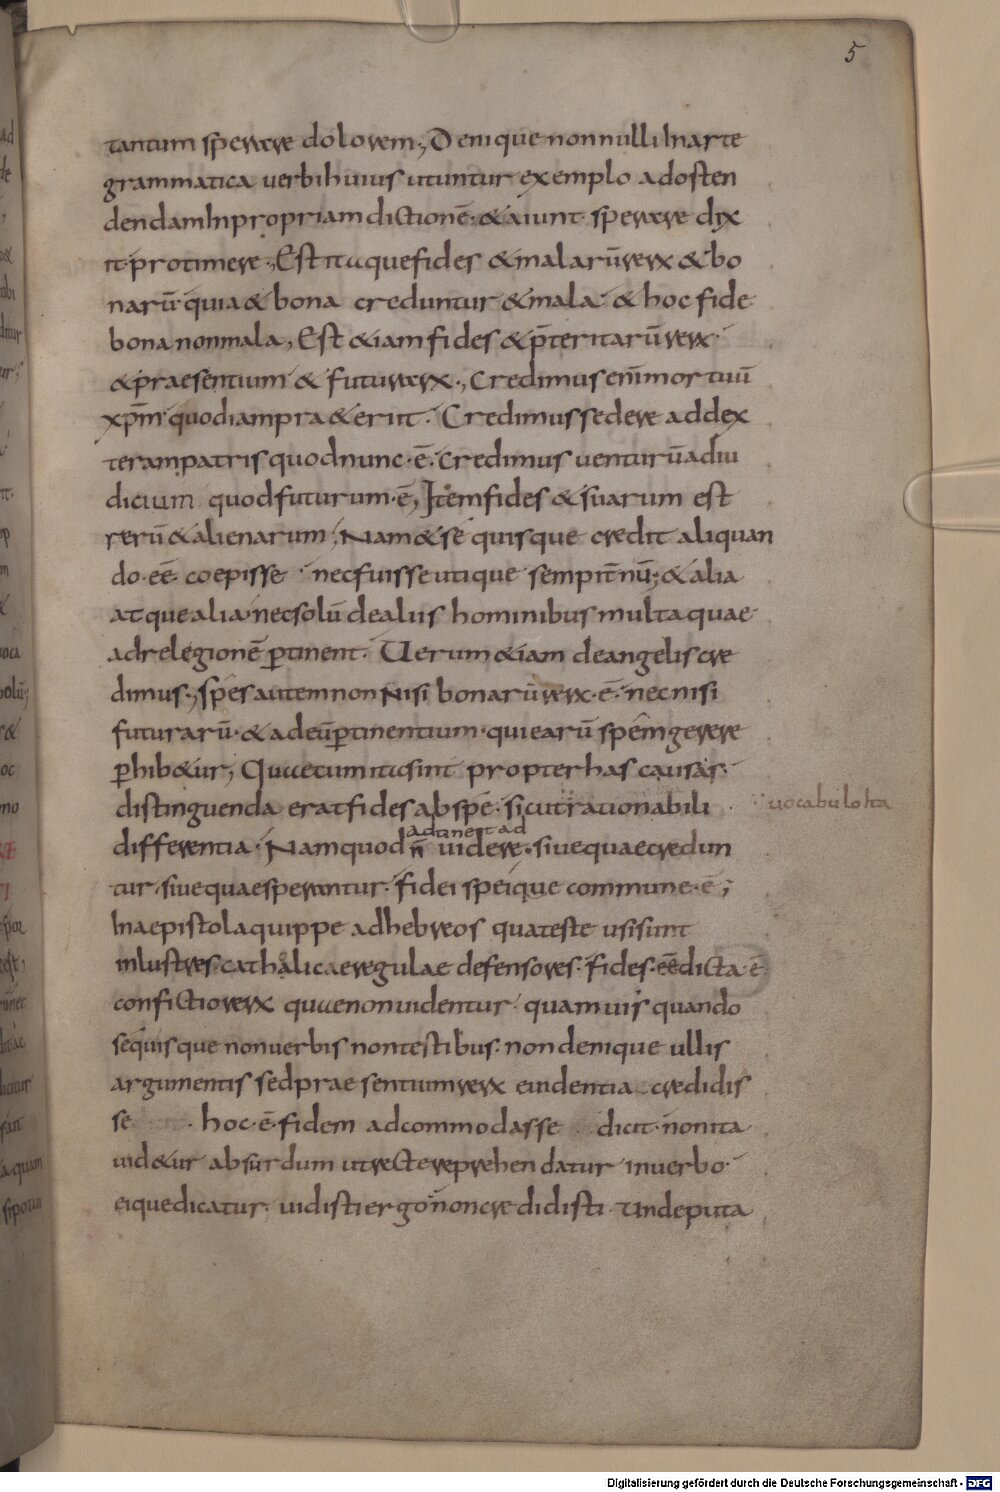 5
tantum sperare dolorem; Denique nonnulli Inarte
grammatica verbi huius utuntur exemplo adosten
dendam Inpropriam dictionē· & aiunt· sperare dix
it· pro timere; Est itaque fides & malarū rerx & bo
narū· quia & bona creduntur & mala· & hoc fide
bona non mala, Est &iam fides & p̄teritarū rerx·
& praesentium & futurarx·, Credimus enī mortuū
xp̄m· quod iam pra&eriit· Credimus sedere ad dex
teram patris quod nunc·ē· Credimus venturū ad iu
dicium quod futurum·ē, Item fides & suarum est
rerū & alienarum; Nam & se quisque credit aliquan
do·eē· coepisse· nec fuisse utique sempit̄nū; & alia
atque alia· nec solū de aliis hominibus multa quae
ad relegionē ꝑtinent· Uerum &iam de angelis cre
dimus·, spes autem non Nisi bonarū rerx·ē· nec nisi
futurarū· & ad eū ꝑtinentium· qui earū spēm gerere
ꝑhib&ur; Quae cum ita sint propter has causas·
distinguenda erat fides ab spe· sicut rationabili
uocabulo ita
differentia· Nam quod
adtinet ad
n̄ uidere· siue quae credun
tur· siue quae sperantur· fidei speique commune·ē;
In aepistola quippe ad hebreos qua teste usi sunt
inlustres· catholicae regulae defensores· fides·eē dicta ē
confictiorerx quae non uidentur· quamuis quando
se quisque non uerbis non testibus· non denique ullis
argumentis sed praesentium rerx euidentia credidis
se hoc·ē· fidem adcommodasse dicit· non ita
uid&ur absurdum ut recte reprehendatur in uerbo·
eique dicatur· uidisti ergo non credidisti· Unde puta
Digitalisierung gefördert durch die Deutsche Forschungsgemeinschaft - DFG